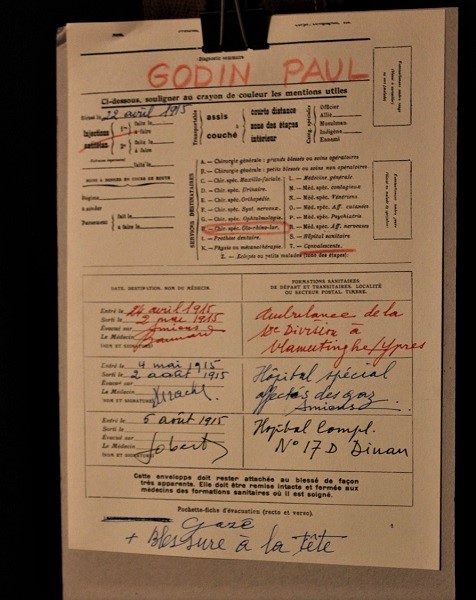 Diagnostic sommaire
GODIN PAUL
Ci-dessous, souligner au crayon de couleur les mentions utiles
22 avril 1915
Injections
à faire
fait le
à faire
fait le
Transportable
assis
ou
couché
courte distance
zone des étapes
intérieur
Catg. spéciales
Officier
Allié
Musulman
Indigène
Ennemi
à ranger
Pansement
fait le
à faire
SERVICES DESTINATAIRES
A. — Chirurgie générale : grands blessés ou soins opératoires
B. — Chirurgie générale : petits blessés ou soins non opératoires
C. — Chir. spéc. Maxillo-faciale.
D. — Chir. spéc. Urinaire.
E. — Chir. spéc. Orthopédie.
F. — Chir. spéc. Syst. nerveux.
G. — Chir. spéc. Ophtalmologie.
H. — Chir. spéc. Oto-rhino-lar.
I. — Prothèse dentaire.
K. — Physio ou mécanothérapie.
L. — Médecine générale.
M. — Méd. spéc. contagieux
N. — Méd. spéc. Vénériens
O. — Méd. spéc. Aff. cutanées
P. — Méd. spéc. Psychiatrie
R. — Méd. spéc. Aff. nerveuses
S. — Hôpital sanitaire
T. — Convalescents.
Z. — Eclopés ou petits malades (zone des étapes)
DATE, DESTINATION, NOM DU MÉDECIN.
FORMATIONS SANITAIRES
DE DÉPART ET TRANSITAIRES, LOCALITÉ
OU SECTEUR POSTAL, TIMBRE.
Entré le 24 avril 1915
Sorti le 2 mai 1915
Évacué sur Amiens
Le Médecin
(NOM ET SIGNATURE)
Ambulance de la
Division à
Vlamertinghe/Ypres
Entré le 4 mai 1915
Sorti le 2 août 1915
Évacué
Le Médecin
(NOM ET SIGNATURE)
Hôpital spécial
affectés des gaz
Amiens
Entré le 5 août 1915
Sorti le
Évacué sur
Le Médecin
(NOM ET SIGNATURE)
Jobert
Hopital Compl.
N° 17 D Dinan
Cette enveloppe doit rester attachée au blessé de façon
très apparente. Elle doit être remise intacte et fermée aux
médecins des formations sanitaires où il est soigné.
Pochette-fiche d'évacuation (recto et verso).
Gazé
+ Blessure à la tête